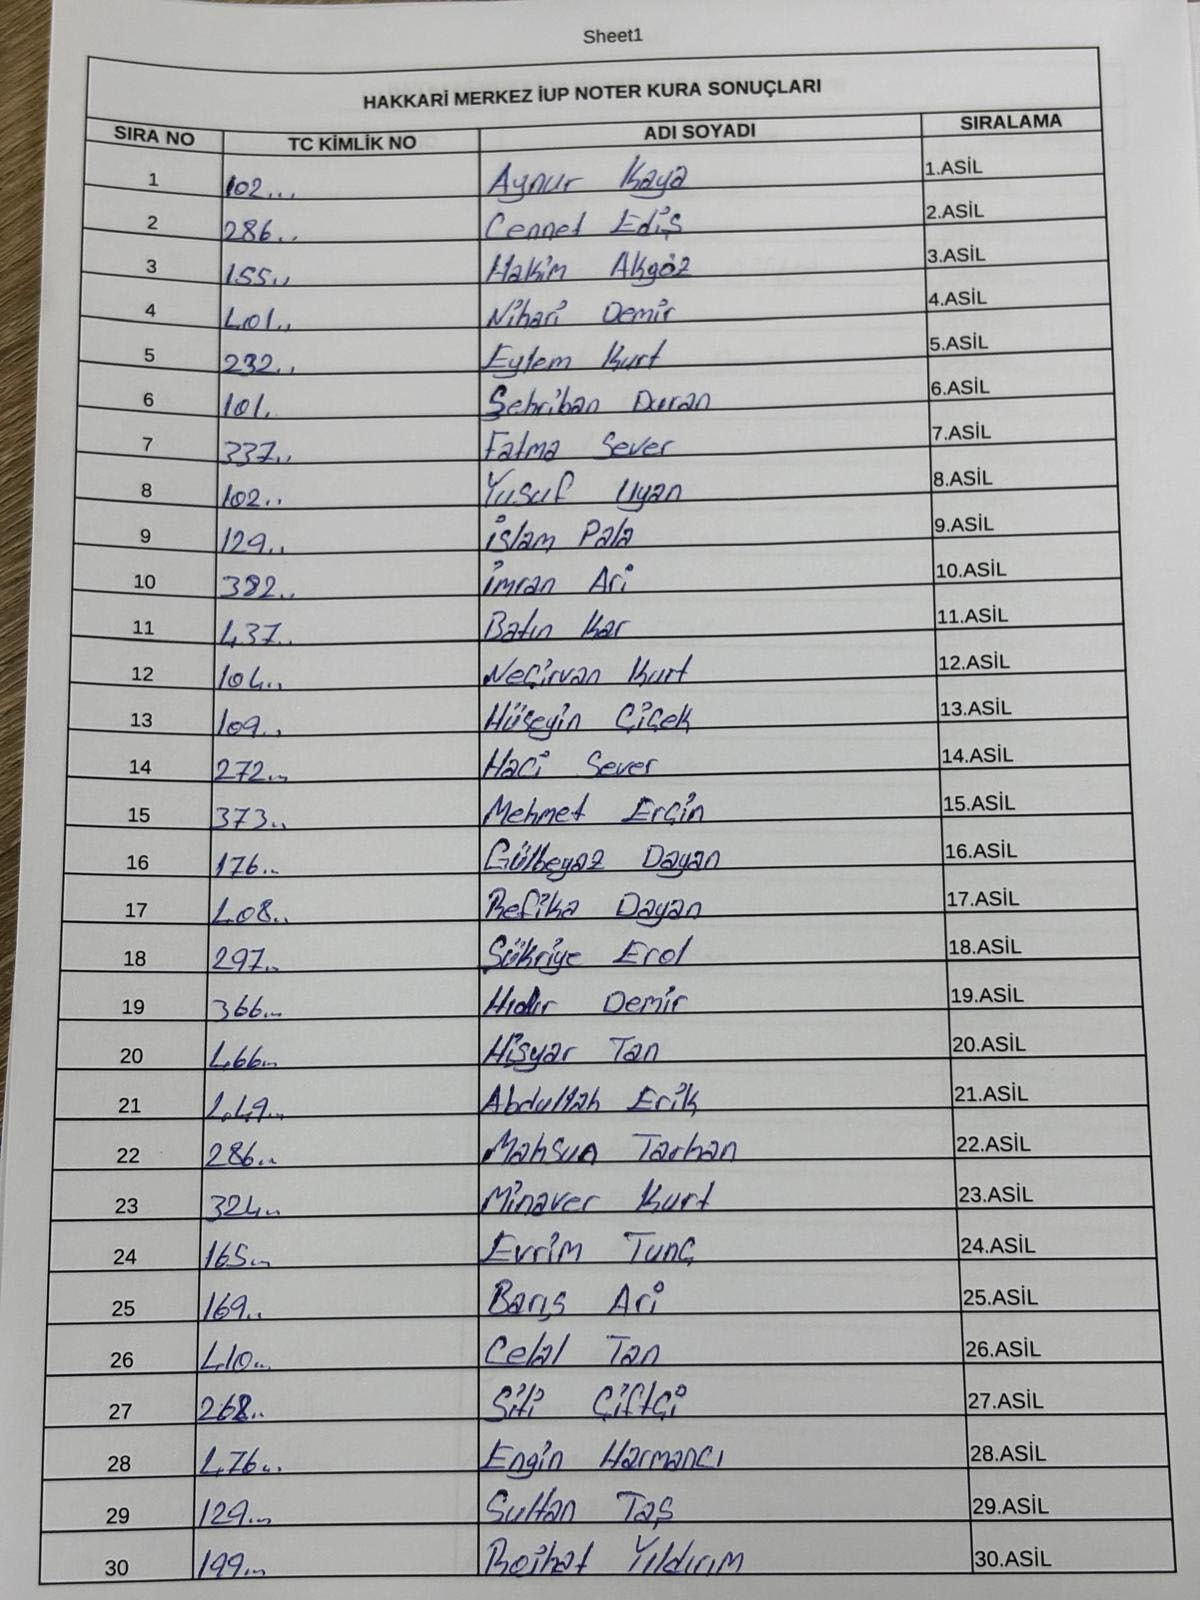 Sheet1
HAKKARİ MERKEZ İUP NOTER KURA SONUÇLARI
SIRA NO TC KİMLİK NO ADI SOYADI SIRALAMA
1 102... Aynur Kaya 1.ASİL
2 286.. Cennet Ediş 2.ASİL
3 155.. Hakim Akgöz 3.ASİL
4 401.. Nihari Demir 4.ASİL
5 232.. Eylem Kurt 5.ASİL
6 101. Şehriban Duran 6.ASİL
7 337.. Fatma Sever 7.ASİL
8 102.. Yusuf Uyan 8.ASİL
9 129.. İslam Pala 9.ASİL
10 382.. İmran Ari 10.ASİL
11 437.. Batın Kar 11.ASİL
12 104... Neçirvan Kurt 12.ASİL
13 109... Hüseyin Çiçek 13.ASİL
14 272... Haci Sever 14.ASİL
15 373.. Mehmet Erçin 15.ASİL
16 176.. Gülbeyaz Dayan 16.ASİL
17 408.. Refika Dayan 17.ASİL
18 297.. Şükriye Erol 18.ASİL
19 366... Hıdır Demir 19.ASİL
20 466... Hişyar Tan 20.ASİL
21 449... Abdullah Erik 21.ASİL
22 286... Mahsun Tarhan 22.ASİL
23 324... Minaver Kurt 23.ASİL
24 165... Evrim Tunç 24.ASİL
25 169.. Barış Ari 25.ASİL
26 410... Celal Tan 26.ASİL
27 268.. Siti Çiftçi 27.ASİL
28 476... Engin Harmancı 28.ASİL
29 129... Sultan Taş 29.ASİL
30 199... Rojhat Yıldırım 30.ASİL